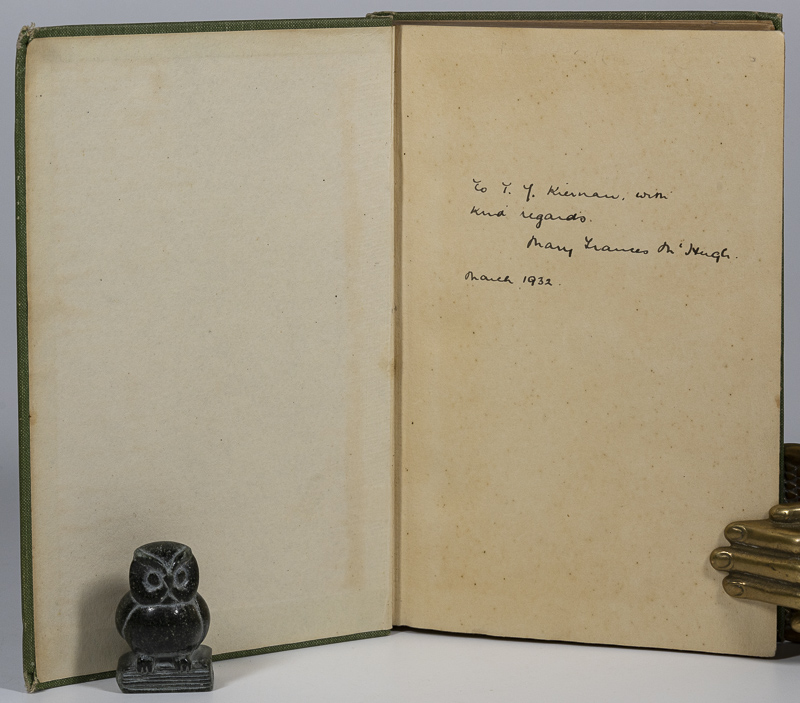 To T. J. Kiernan, with
kind regards.
Mary Frances McHugh.
March 1932.